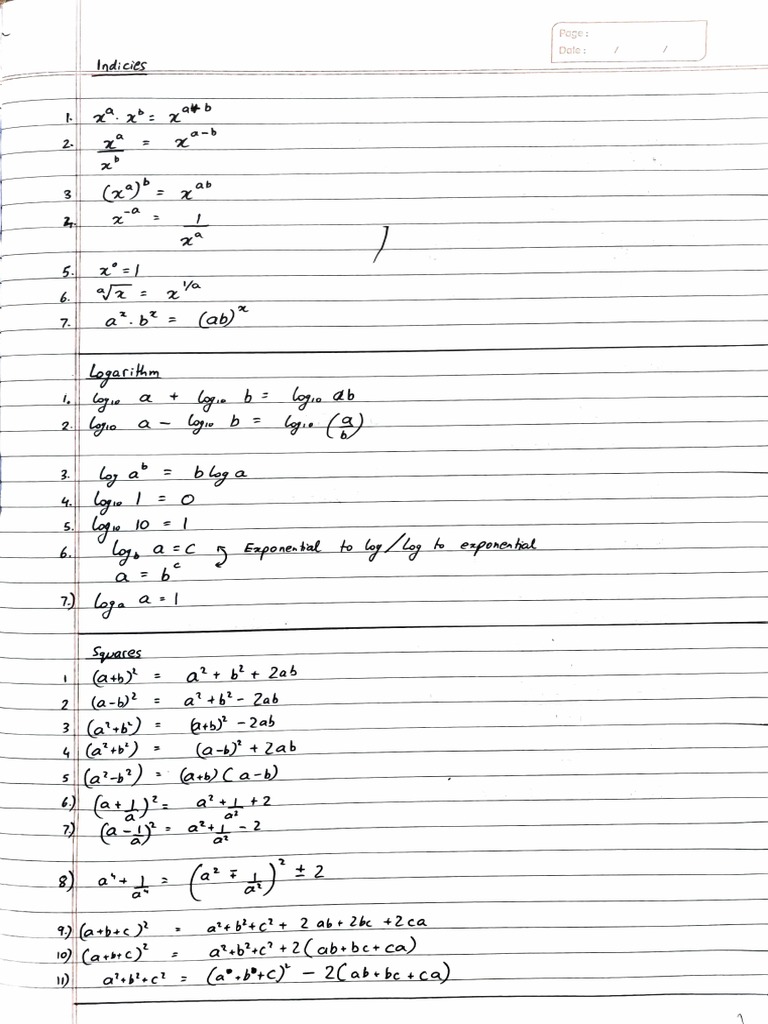 Page :
Date : / /
Indicies
1. xᵃ · xᵇ = xᵃ⁺ᵇ
2. xᵃ/xᵇ = xᵃ⁻ᵇ
3 (xᵃ)ᵇ = xᵃᵇ
4. x⁻ᵃ = 1/xᵃ
5. x⁰ = 1
6. ᵃ√x = x^(1/a)
7. aˣ · bˣ = (ab)ˣ
Logarithm
1. log₁₀ a + log₁₀ b = log₁₀ ab
2. log₁₀ a − log₁₀ b = log₁₀ (a/b)
3. log aᵇ = b log a
4. log₁₀ 1 = 0
5. log₁₀ 10 = 1
6. log_b a = c Exponential to log/log to exponential
a = bᶜ
7.) logₐ a = 1
Squares
1 (a+b)² = a² + b² + 2ab
2 (a-b)² = a² + b² - 2ab
3 (a²+b²) = (a+b)² - 2ab
4 (a²+b²) = (a-b)² + 2ab
5 (a²-b²) = (a+b) (a-b)
6.) (a + 1/a)² = a² + 1/a² + 2
7.) (a - 1/a)² = a² + 1/a² - 2
8) a⁴ + 1/a⁴ = (a² ∓ 1/a²)² ± 2
9.) (a+b+c)² = a²+b²+c² + 2ab + 2bc + 2ca
10) (a+b+c)² = a²+b²+c² + 2(ab+bc+ca)
11) a²+b²+c² = (a+b+c)² - 2(ab+bc+ca)